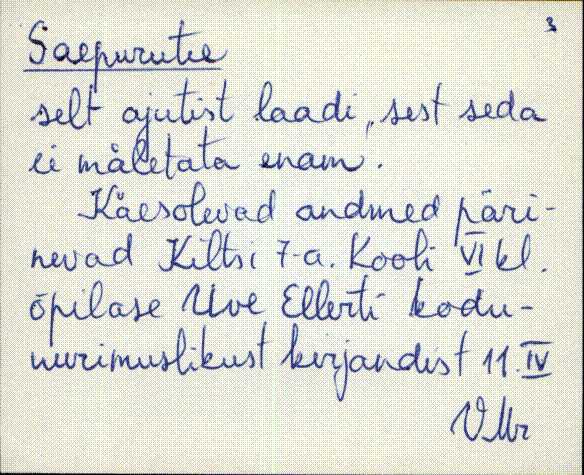 3
Saepurutee
selt ajutist laadi, sest seda
ei mäletata enam.
Käesolevad andmed päri-
nevad Kiltsi 7-a. Kooli VI kl.
õpilase Uve Ellerti kodu-
uurimuslikust kirjandist 11. IV
VMr